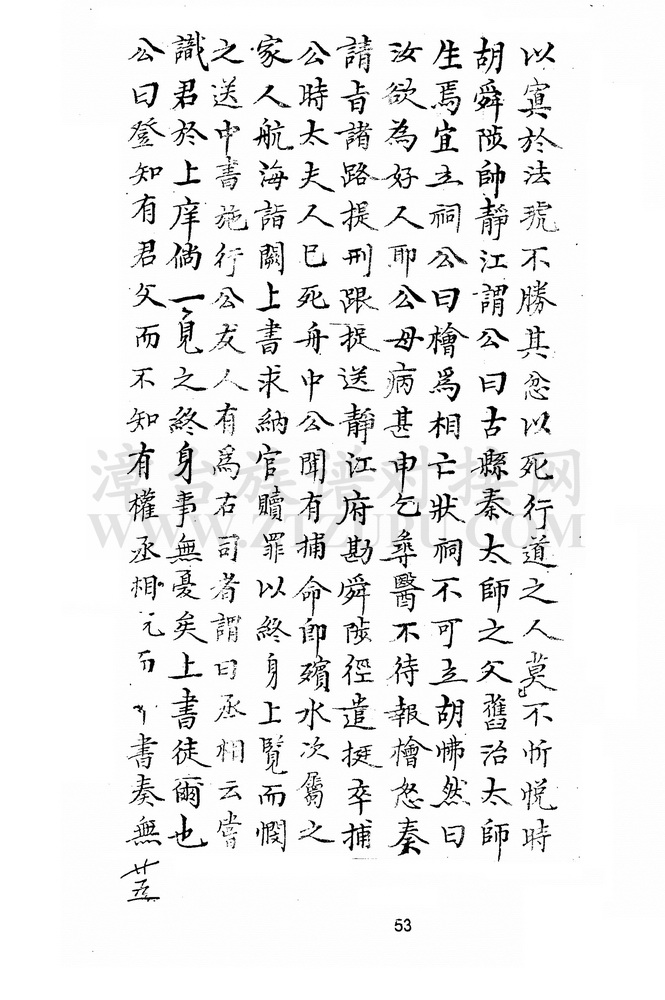 以寘於法琥不勝其忿以死行道之人莫不忻悅時
胡舜陟帥靜江謂公曰古縣秦太師之父舊治太師
生焉宜立祠公曰檜爲相亡狀祠不可立胡怫然曰
汝欲為好人耶公母病甚申乞尋醫不待報檜怒奏
請旨諸路提刑跟捉送靜江府勘舜陟徑遣挺卒捕
公時太夫人已死舟中公聞有捕命卽殯水次屬之
家人航海詣闕上書求納官贖罪以終身上覽而憫
之送中書施行公友人有爲右司者謂曰丞相云嘗
識君於上庠倘一見之終身事無憂矣上書徒爾也
公曰登知有君父而不知有權丞相 而 書奏無
廿五
53
漳台族谱对接网
WWW.ZTZUPU.COM